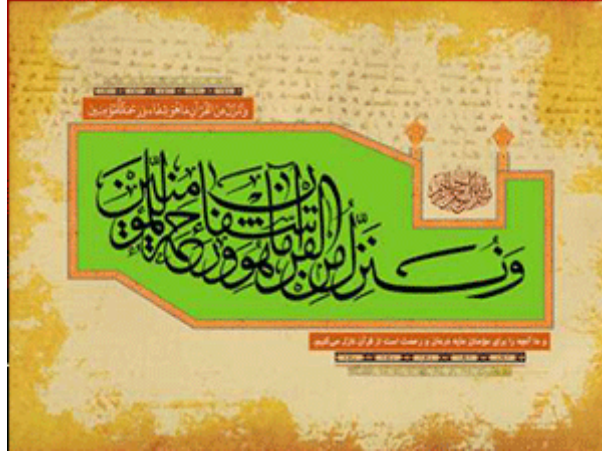 وننزل من القرآن ما هو شفاء ورحمة للمؤمنين
بسم الله الرحمن الرحيم
وَنُنَزِّلُ مِنَ الْقُرْآنِ مَا هُوَ شِفَاءٌ وَرَحْمَةٌ لِلْمُؤْمِنِينَ
و ما آنچه را برای مؤمنان مایه درمان و رحمت است از قرآن نازل می‌کنیم.